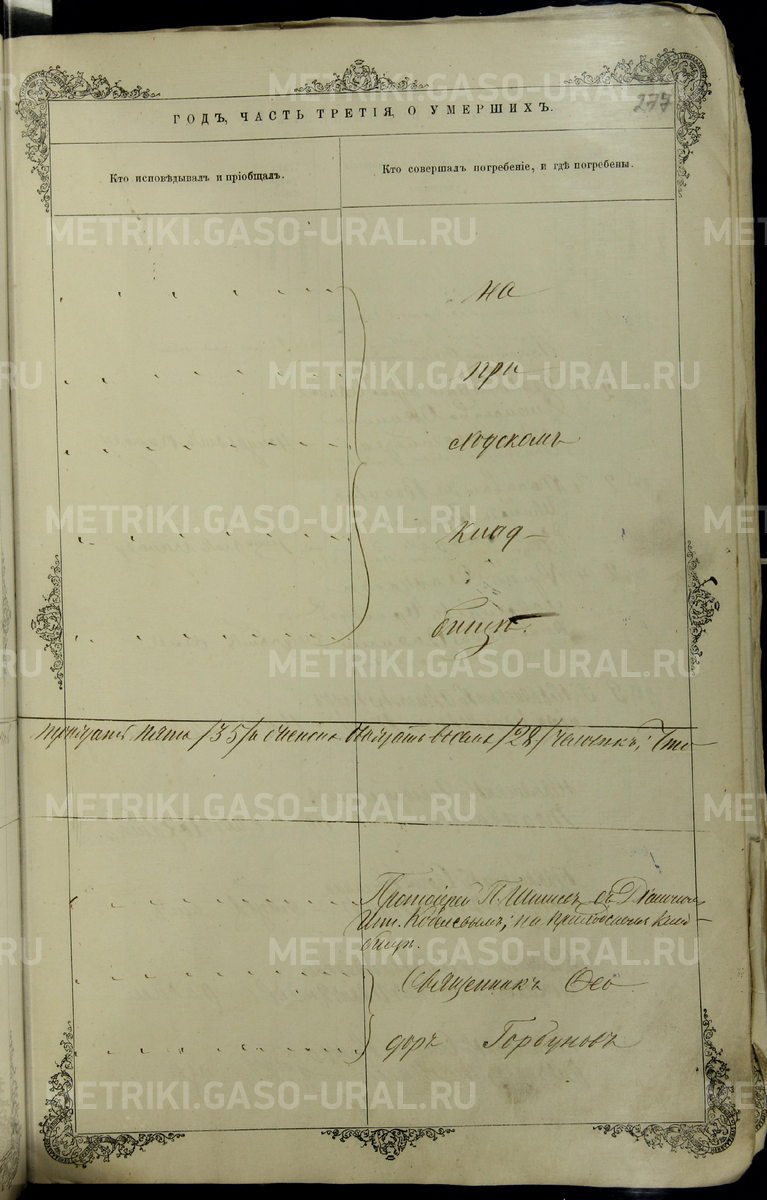 METRIKI.GASO-URAL.RU
277
ГОДЪ, ЧАСТЬ ТРЕТІЯ, О УМЕРШИХЪ.
Кто исповѣдывалъ и пріобщалъ.
Кто совершалъ погребеніе, и гдѣ погребены.
на
при
ходскомъ
клад-
бищѣ.
тридцать пять /35/ а женска двадцать восемь /28/ человѣкъ; Что
Протоіерей П. съ Діакономъ
на приходскомъ клад-
бищѣ.
Священникъ Ѳео
доръ Горбуновъ